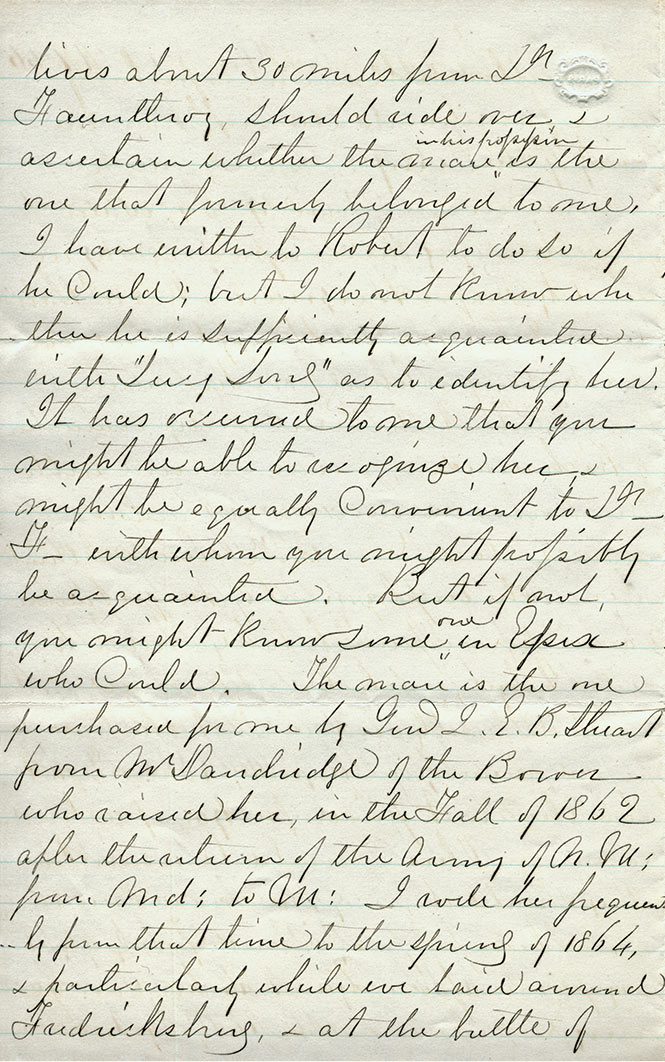 lives about 30 miles from Dr
Fauntleroy, should ride over &
in his possession
ascertain whether the mare is the
one that formerly belonged to me.
I have written to Robert to do so if
he Could; but I do not Know whe
ther he is sufficiently acquainted
with "Lucy Long" as to identify her.
It has occurred to me that you
might be able to recognize her, &
might be equally Convenient to Dr
F— with whom you might possibly
be acquainted. But if not,
you might Know some one in Essex
who Could. The mare is the one
purchased for me by Genl J. E. B. Stuart
from Mr Dandridge of the Bower
who raised her, in the Fall of 1862
after the return of the Army of N. Va:
from Md: to Va: I rode her frequent
ly from that time to the spring of 1864,
& particularly while we laid around
Fredricksburg, & at the battle of